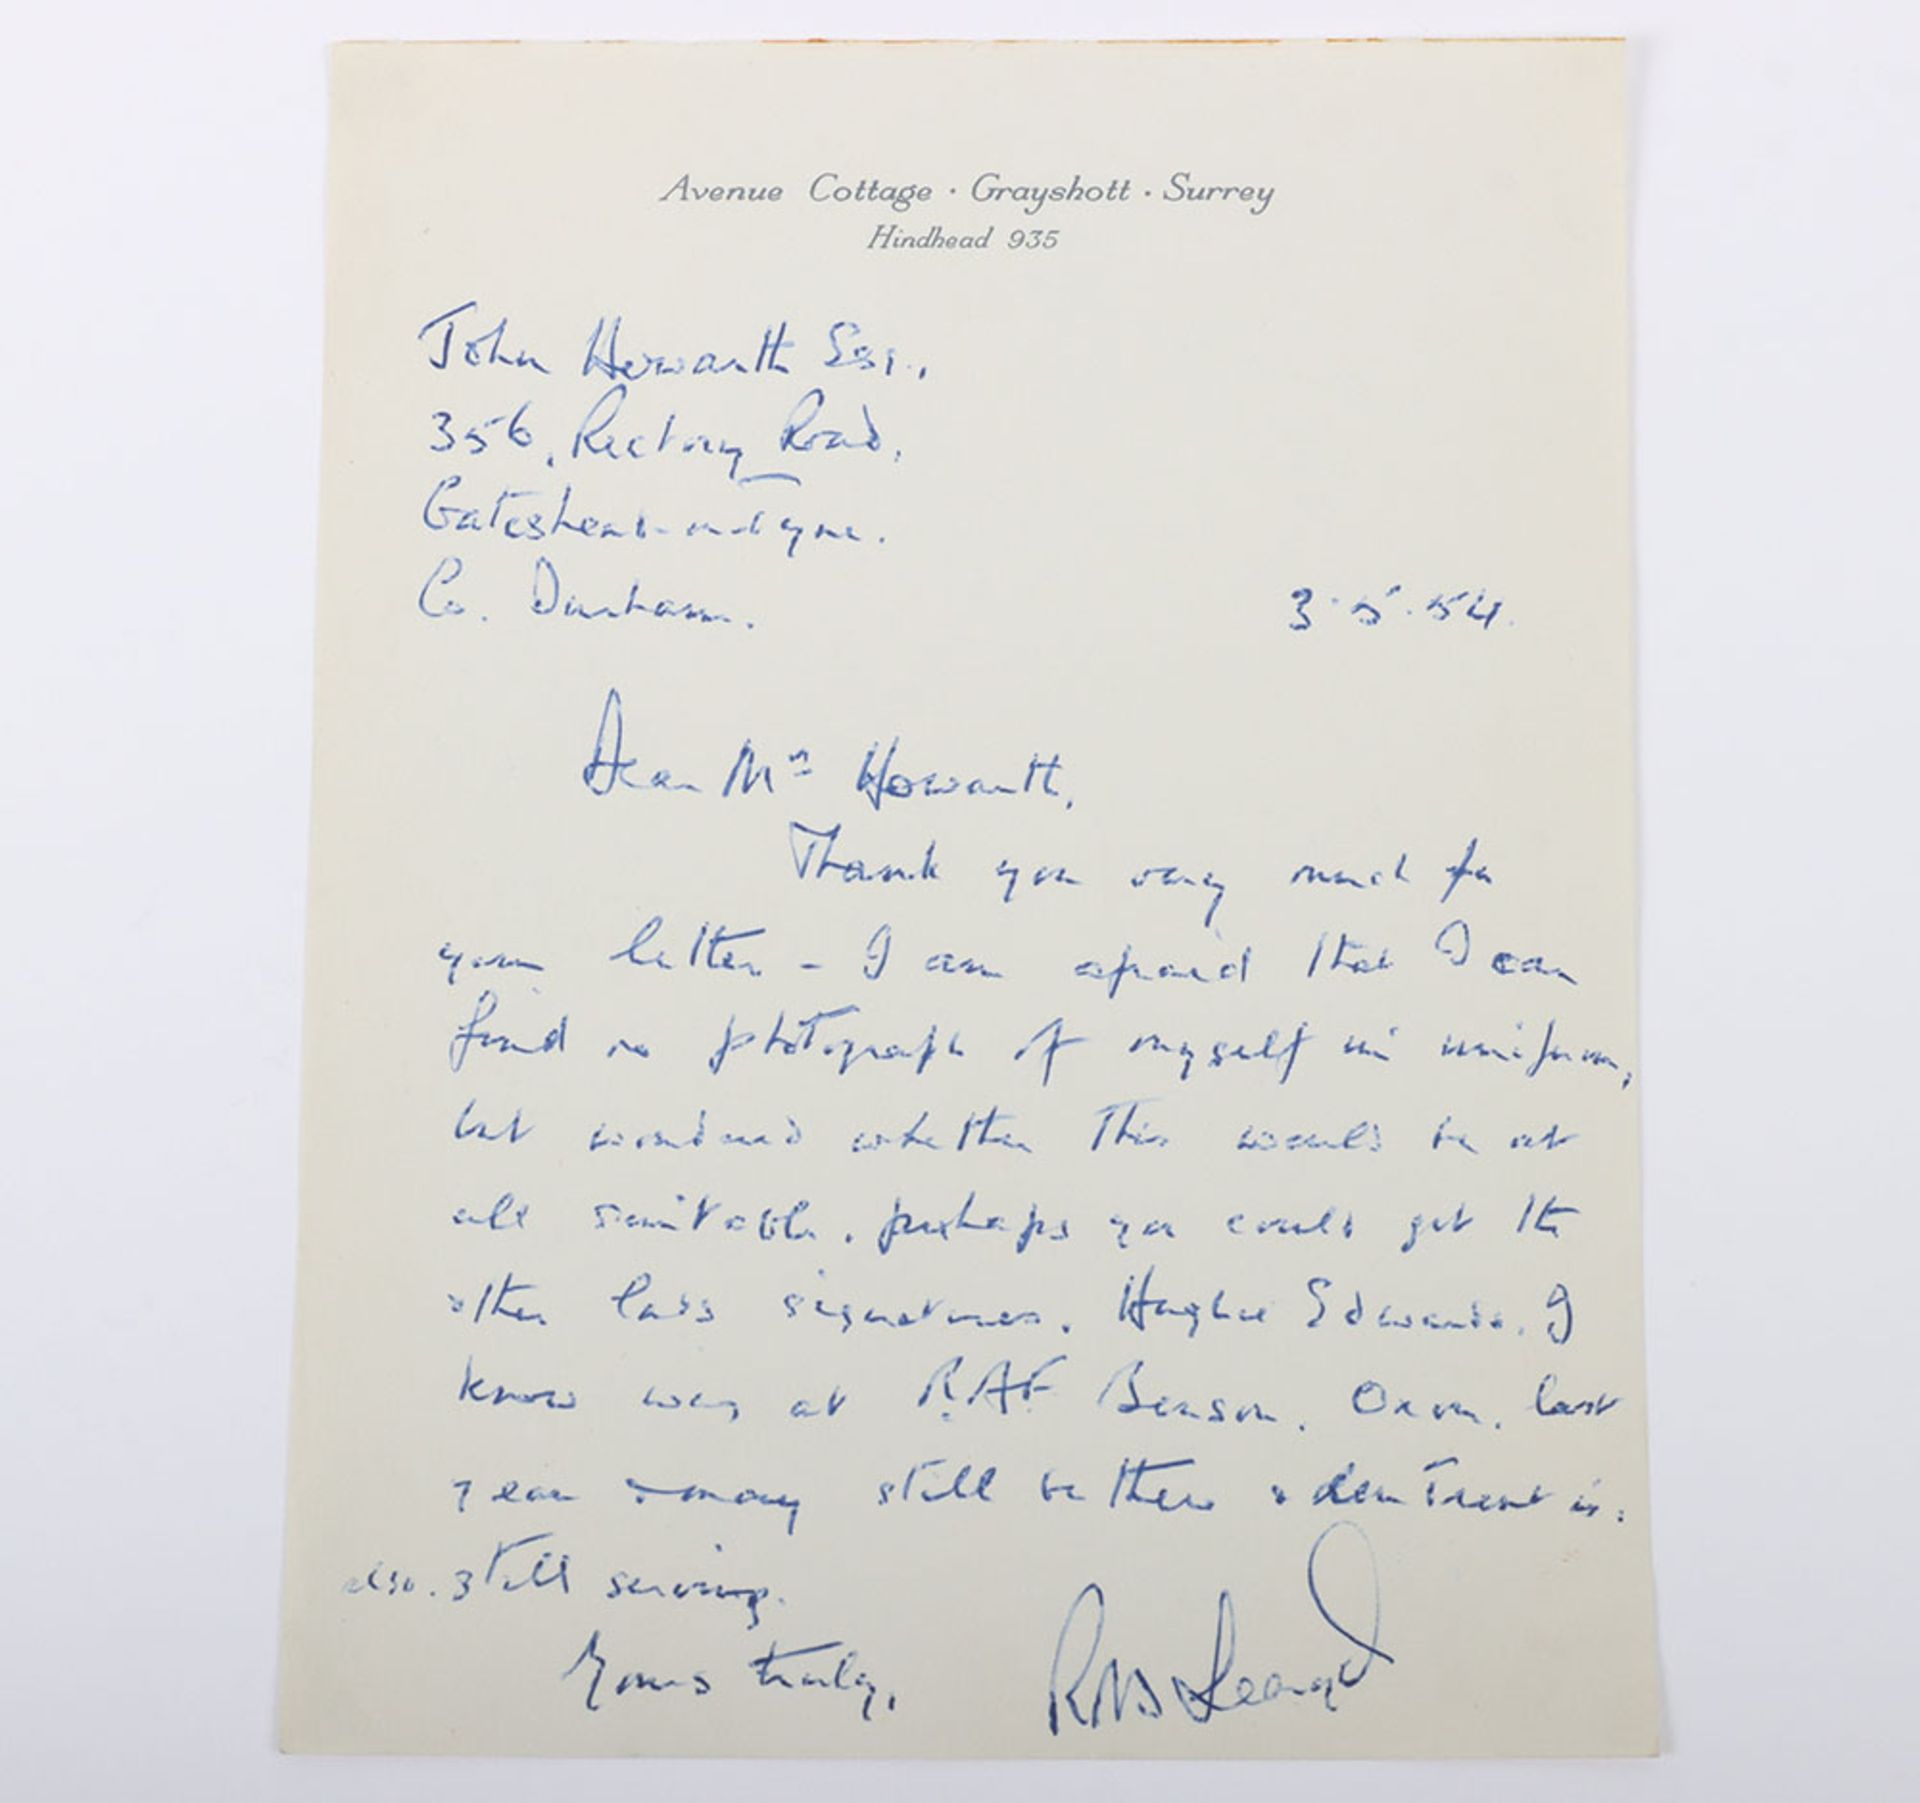 Avenue Cottage · Grayshott · Surrey
Hindhead 935
John Howarth Esq.,
356, Rectory Road,
Gateshead-on-Tyne.
Co. Durham.
3.5.54.
Dear Mr Howarth,
Thank you very much for
your letter - I am afraid that I can
find no photograph of myself in uniform,
but wondered whether this would be at
all suitable. perhaps you could get the
other lads signatures. Hughie Edwards. I
know was at R.A.F. Benson. Oxon. last
year & may still be there & Len Trent is.
also. still serving.
Yours truly,
R A B Learoyd